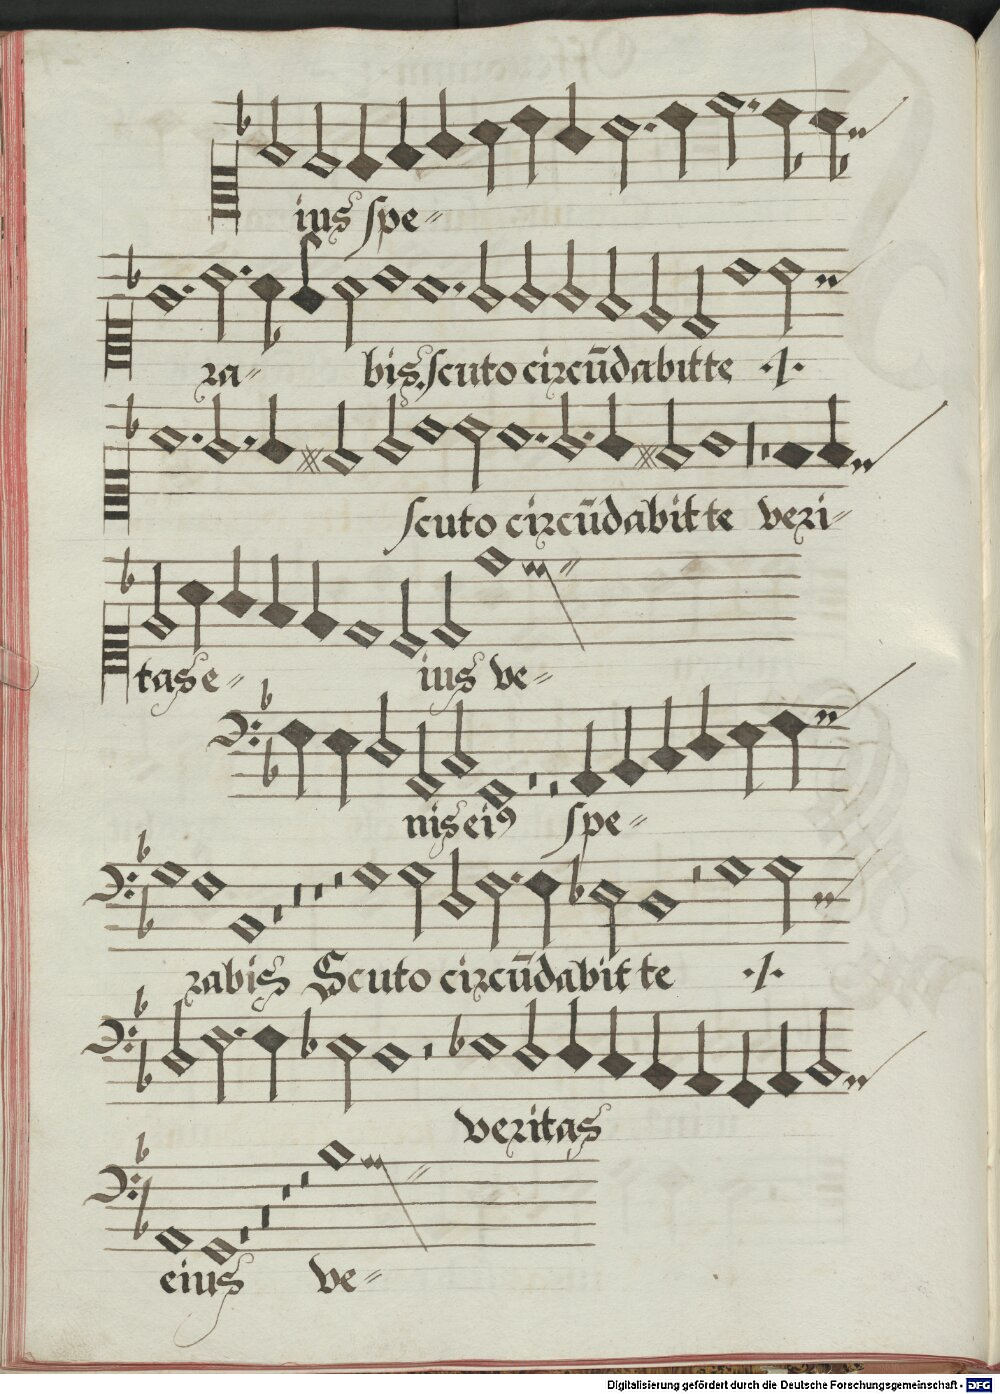 ius spe〃
ra〃 bis, scuto circūdabit te ·/·
scuto circūdabit te veri〃
tas e〃 ius ve〃
nis eiꝰ spe〃
rabis Scuto circūdabit te ·/·
veritas
eius ve〃
Digitalisierung gefördert durch die Deutsche Forschungsgemeinschaft - DFG